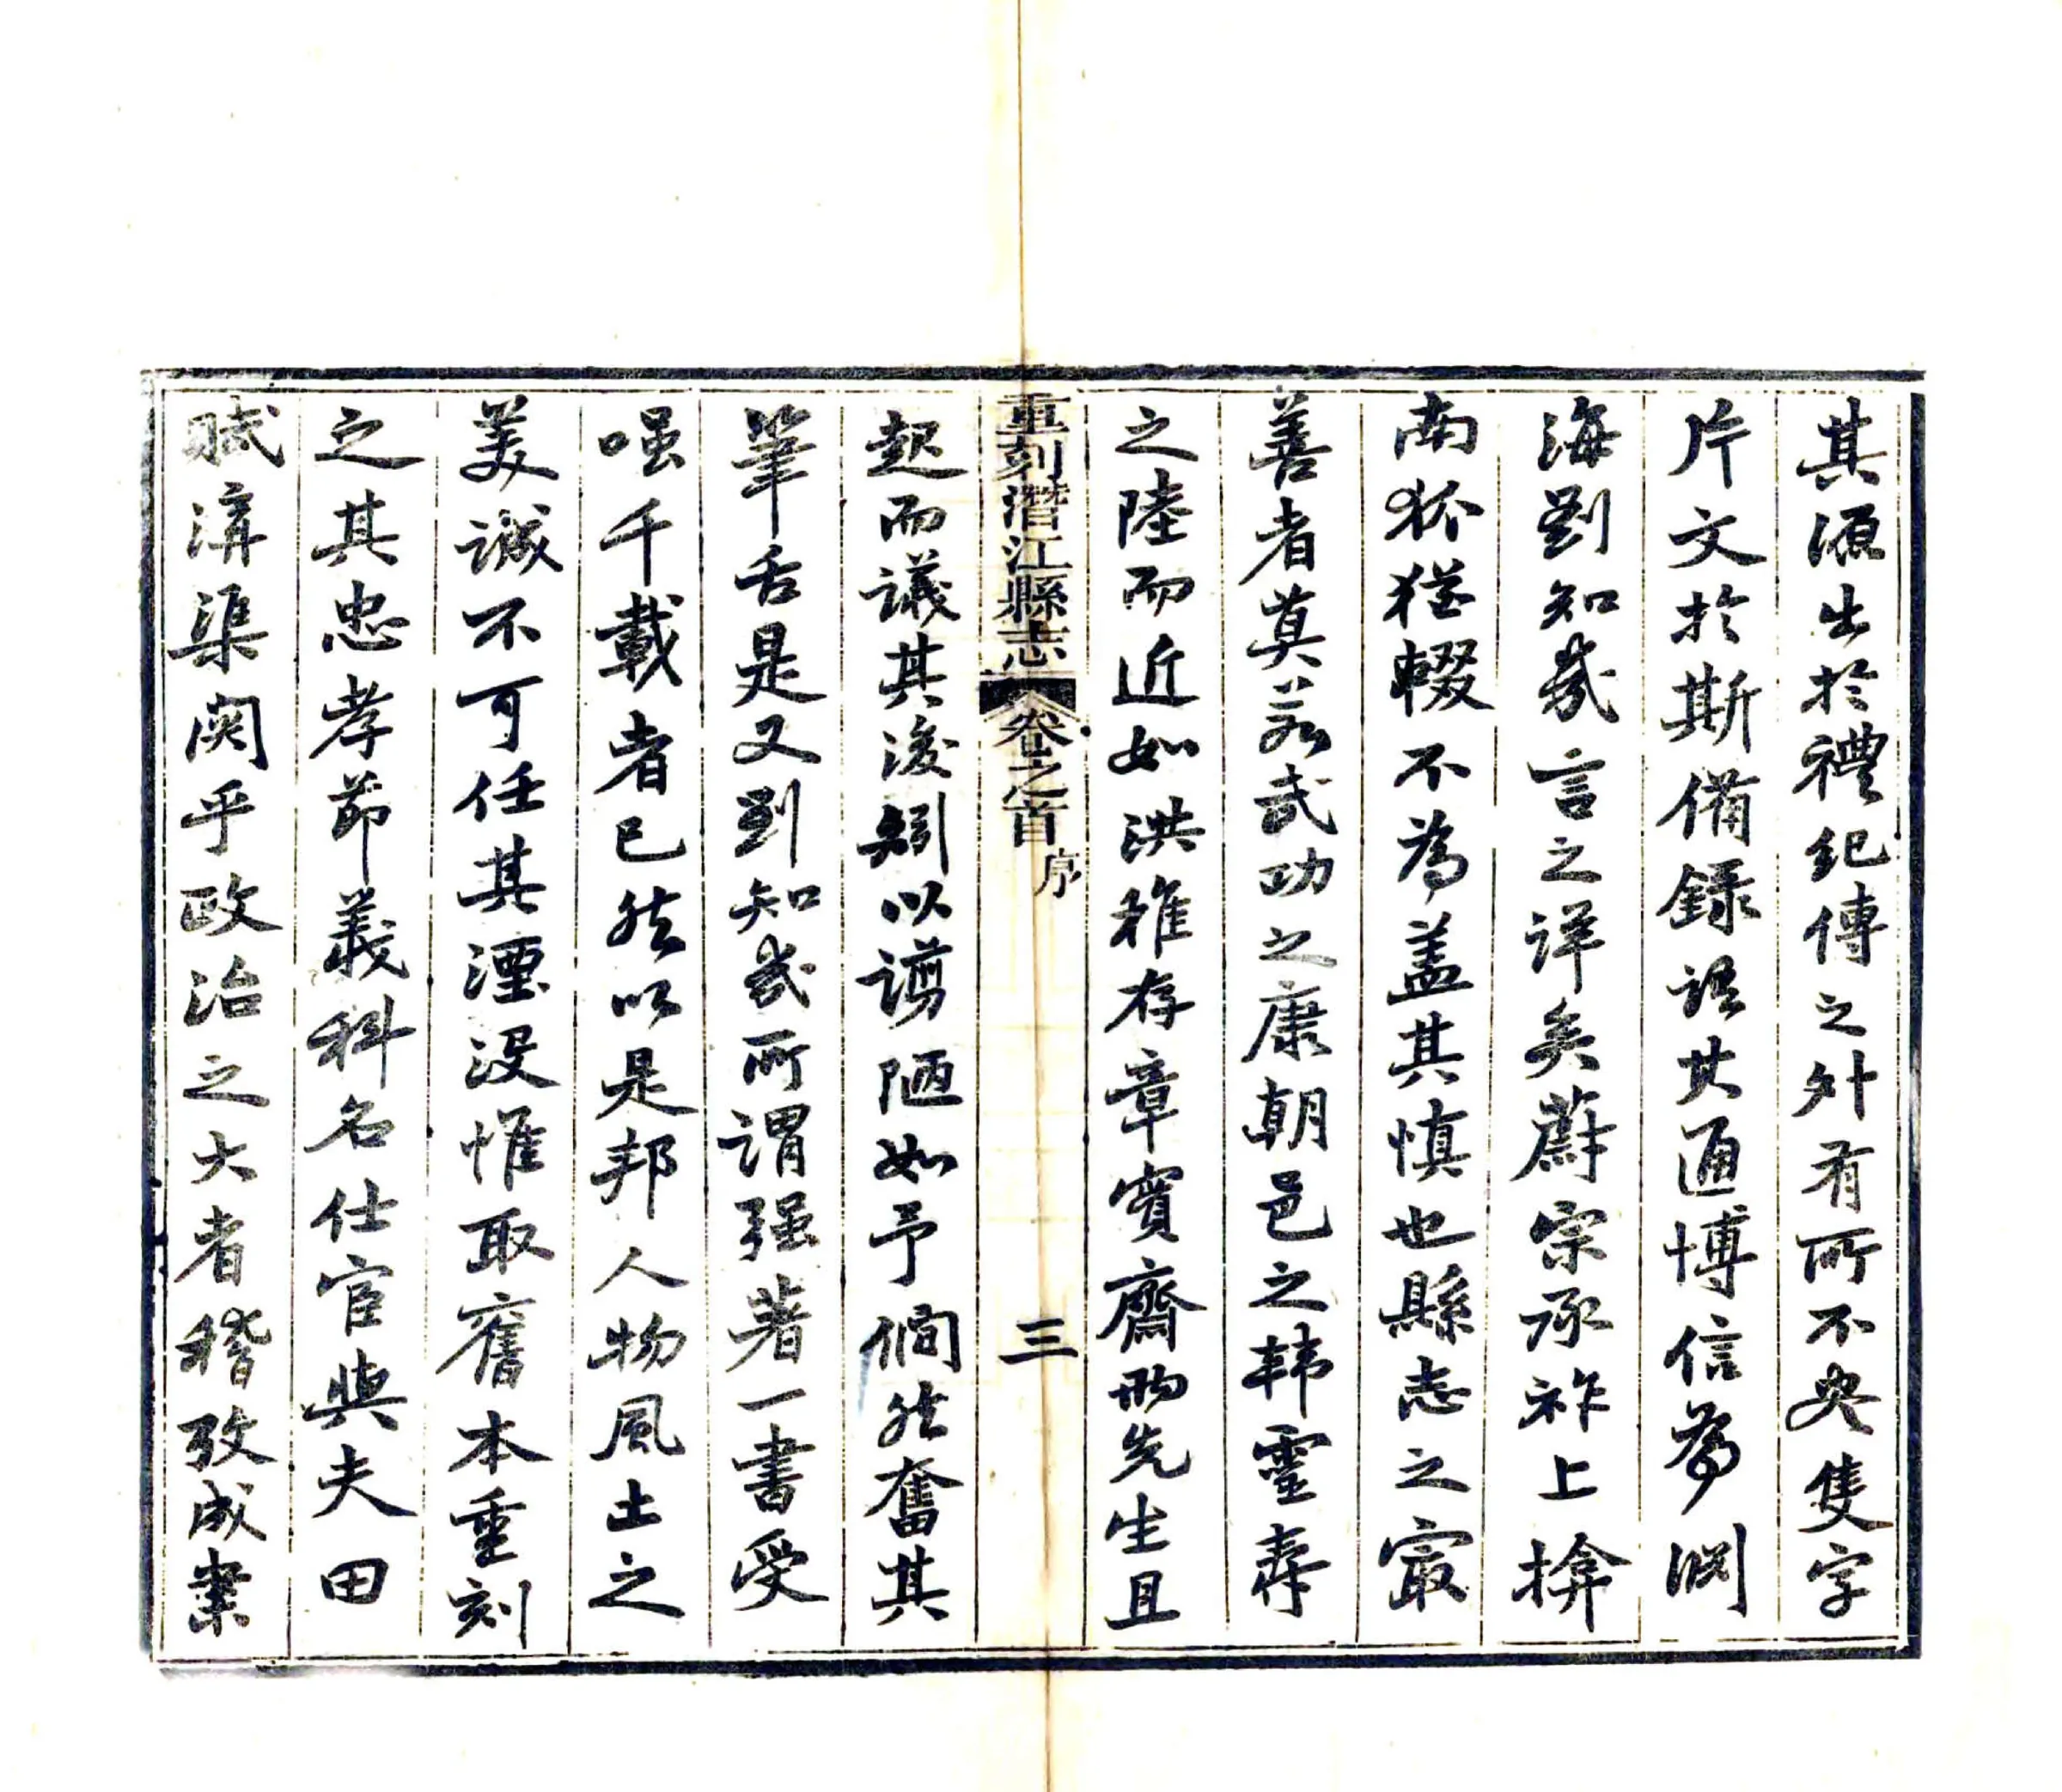 其源出於禮紀傳之外有所不央隻字
片文於斯備錄語其通博信為淵
海劉知幾言之詳矣蔚宗承祚上揜
南狐猶輟不為蓋其慎也縣志之寂
善者莫若武功之康朝邑之韩靈壽
之陸而近如洪稚存章實齋兩先生且
重刻潛江縣志 卷之首 序 三
起而議其後矧以謭陋如予僩然奮其
筆舌是又劉知幾所謂强著一書受
嗤千載者已然以是邦人物風土之
美誠不可任其湮没惟取舊本重刻
之其忠孝節義科名仕宦與夫田
賦溝渠関乎政治之大者稽攷成案